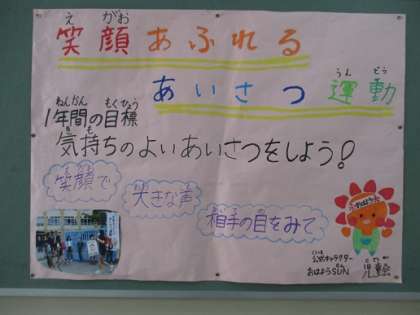 えがお
笑顔あふれる
うんどう
あいさつ運動
ねんかん もくひょう
1年間の目標
きも
気持ちのよいあいさつをしよう!
笑顔で
大きな声
相手の目をみて
おはよう
公式キャラクター
おはようSUN
児童会